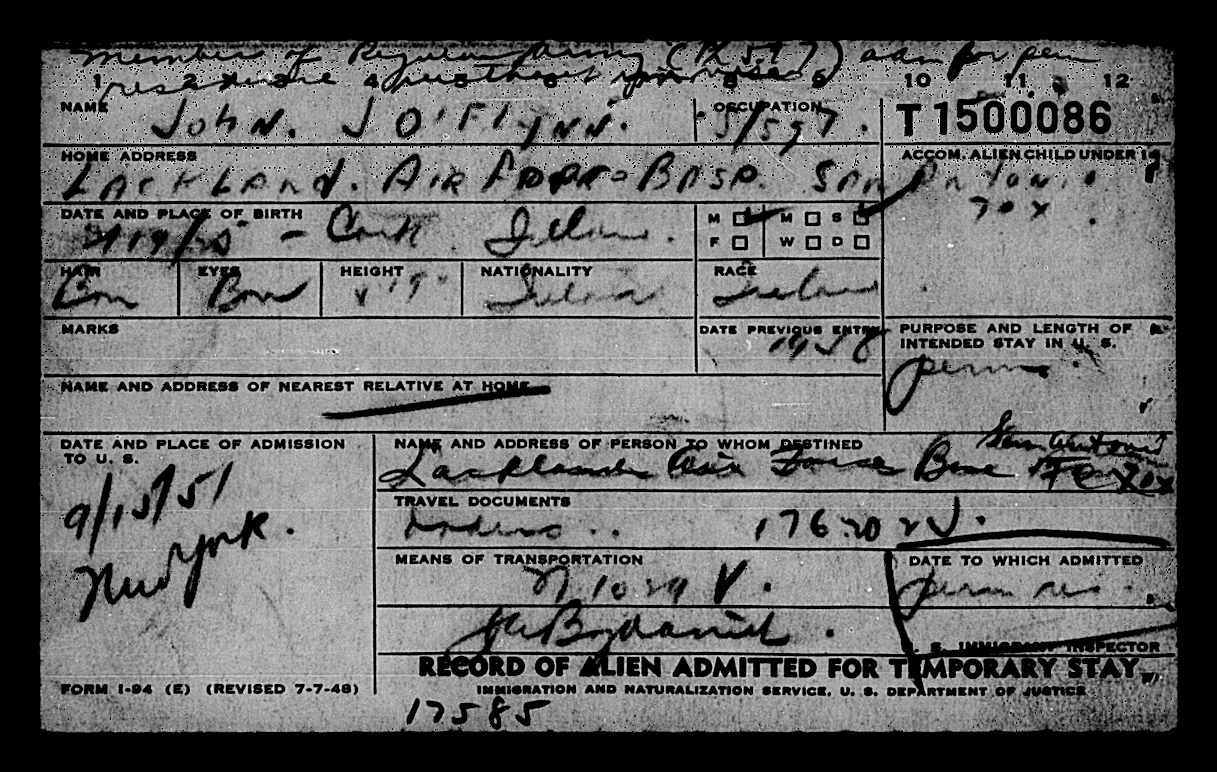 Member of Regular Army (R 597) adm for perm
1 2 3 4 5 6 7 8 9 10 11 12
res
NAME
John. J O'Flynn.
OCCUPATION
S/597.
T 1500086
HOME ADDRESS
LACKLAND. AIR FORCE - BASE. SAN Antonio
TEX.
ACCOM. ALIEN CHILD UNDER 14
DATE AND PLACE OF BIRTH
/19/25 - Cork. Ireland.
M M S
F W D
HAIR
Brn
EYES
Brn
HEIGHT
NATIONALITY
Ireland
RACE
Ireland
MARKS
DATE PREVIOUS ENTRY
PURPOSE AND LENGTH OF
INTENDED STAY IN U. S.
perm.
NAME AND ADDRESS OF NEAREST RELATIVE AT HOME
DATE AND PLACE OF ADMISSION
TO U. S.
9/15/51
New York.
NAME AND ADDRESS OF PERSON TO WHOM DESTINED
San Antonio
Lackland Air Force Base Texas
TRAVEL DOCUMENTS
orders..
MEANS OF TRANSPORTATION
N 1029 V.
DATE TO WHICH ADMITTED
perm res.
U. S. IMMIGRANT INSPECTOR
RECORD OF ALIEN ADMITTED FOR TEMPORARY STAY
FORM I-94 (E) (REVISED 7-7-48)
IMMIGRATION AND NATURALIZATION SERVICE, U. S. DEPARTMENT OF JUSTICE
17585